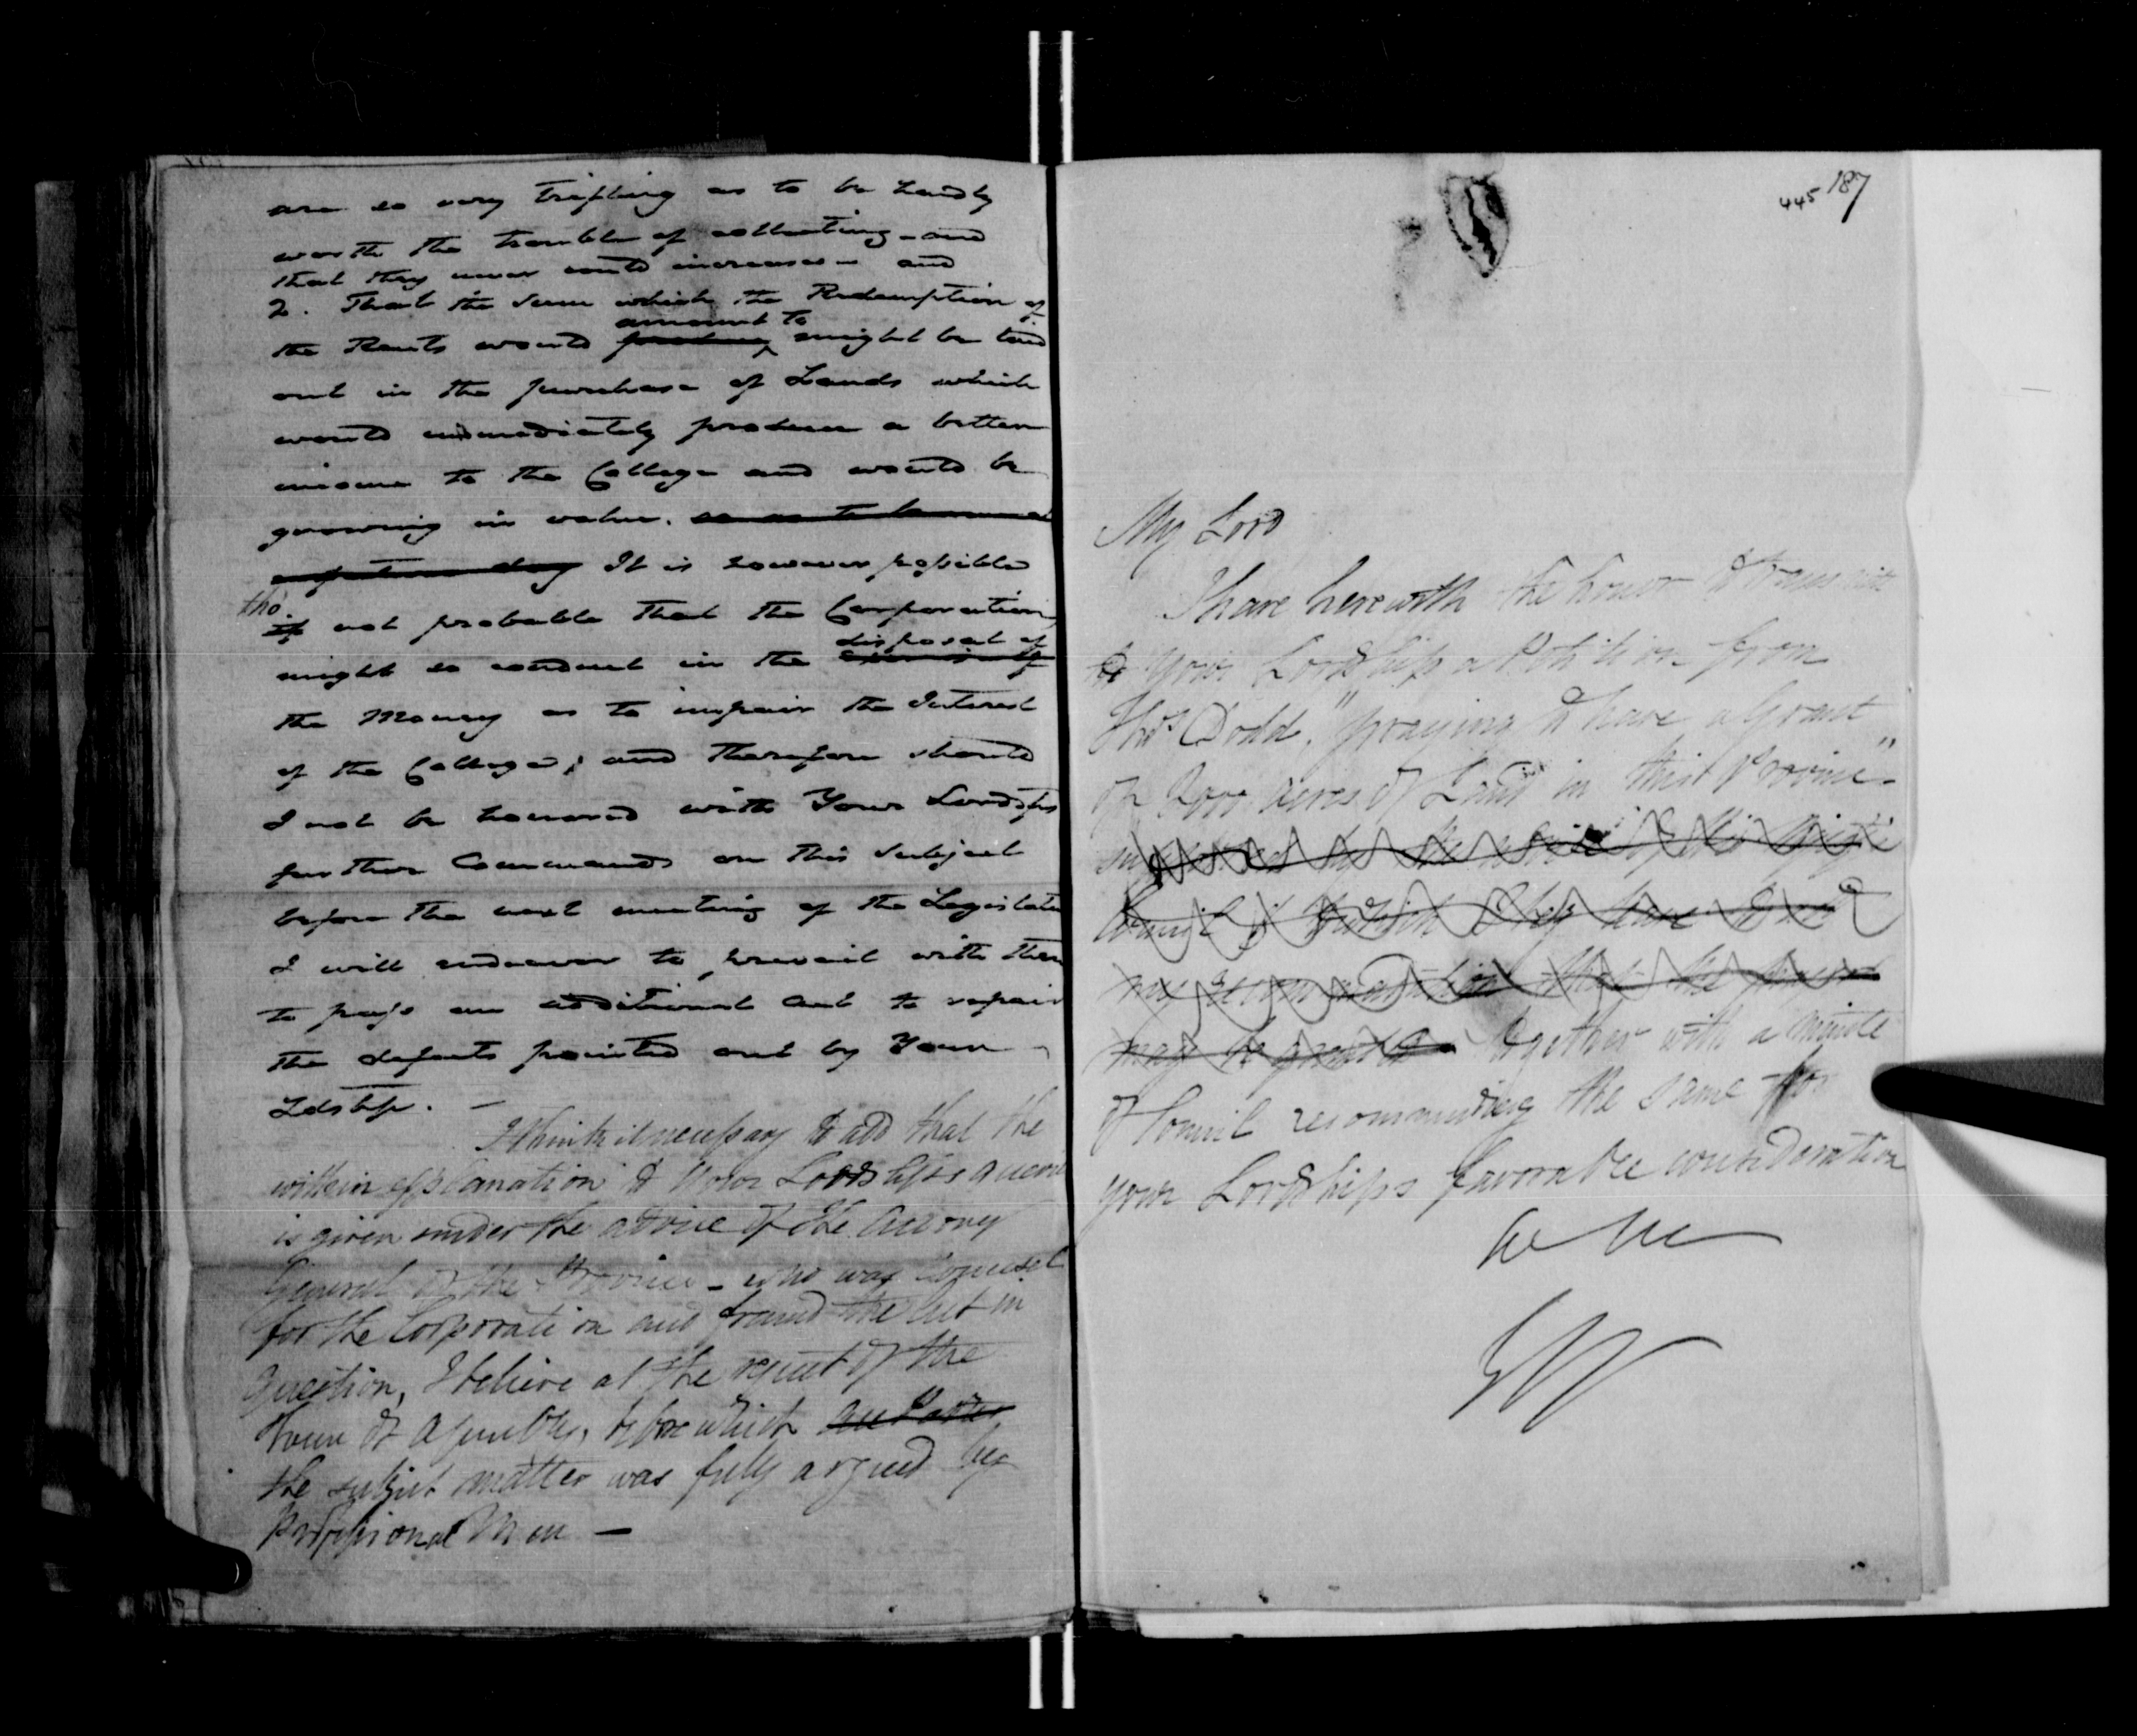 are so very trifling as to be hardly
worth the trouble of collecting - and
that they never could increase - and
2. That the sum which the Redemption of
amount to
the Rents would might be laid
out in the purchase of Lands which
would immediately produce a better
income to the College and would be
growing in value. so as to
day It is however possible
tho'
if not probable that the Corporation
disposal of
might so conduct in the
the Money as to impair the Interest
of the College; and therefore should
I not be honored with Your Lordships
further Commands on this subject
before the next meeting of the Legislature
I will endeavor to prevail with them
to pass an additional Act to repair
the defects pointed out by Your
Ldship. -
I think it necessary to add that the
within explanation to Your Lordships
is given under the advice of the Attorney
General of the Province - who was Counsel
for the Corporation and framed the Act in
question, I believe at the request of the
House of Assembly, before which
the subject matter was fully argued by
Professional Men -
445 187
My Lord
I have herewith the honor to transmit
to Your Lordship a Petition from
Thos Dodd, "praying to have a Grant
of acres of Land in this Province"
Council
my recommendation that the
may be granted together with a minute
of Council recommending the same for
your Lordships favorable consideration